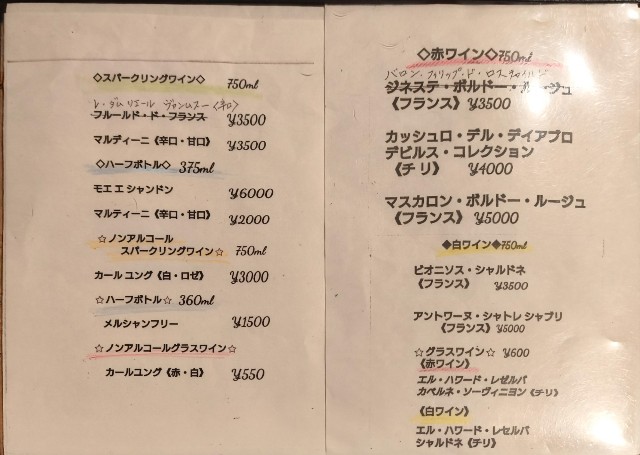 ◇スパークリングワイン◇ 750ml
フルールド・ド・フランス ¥3500
マルディーニ《辛口・甘口》 ¥3500
◇ハーフボトル◇ 375ml
モエ エ シャンドン ¥6000
マルディーニ《辛口・甘口》 ¥2000
☆ノンアルコール
スパークリングワイン☆ 750ml
カール ユング《白・ロゼ》 ¥3000
☆ハーフボトル☆ 360ml
メルシャンフリー ¥1500
☆ノンアルコールグラスワイン☆
カールユング《赤・白》 ¥550
◇赤ワイン◇750ml
バロン・フィリップ・ド・ロスチャイルド
ジネステ・ボルドー・ルージュ
《フランス》 ¥3500
カッシェロ・デル・デイアブロ
デビルス・コレクション
《チリ》 ¥4000
マスカロン・ボルドー・ルージュ
《フランス》 ¥5000
◆白ワイン◆750ml
ピオニソス・シャルドネ
《フランス》 ¥3500
アントワーヌ・シャトレ シャブリ
《フランス》 ¥5000
☆グラスワイン☆ ¥600
《赤ワイン》
エル・ハワード・レゼルバ
カベルネ・ソーヴィニヨン《チリ》
《白ワイン》
エル・ハワード・レセルバ
シャルドネ《チリ》